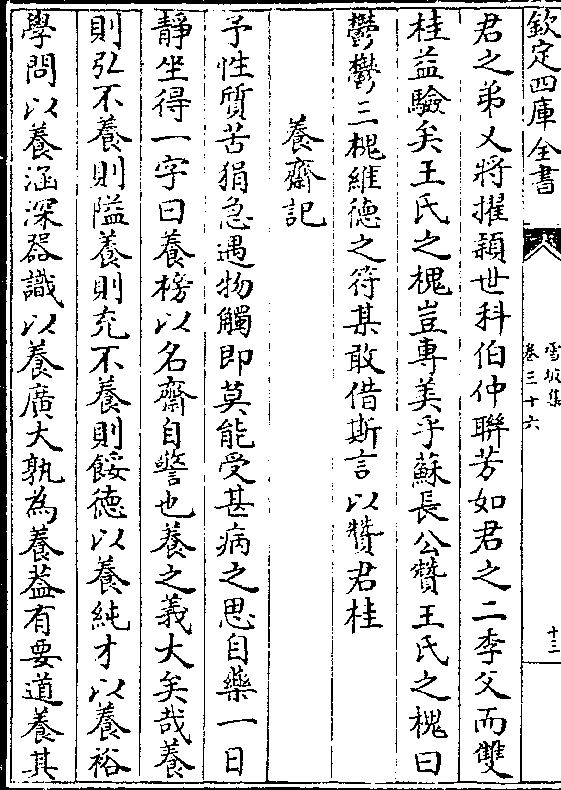 欽定四庫全書
雪坡集
卷三十六
十三
君之弟乂將擢穎世科伯仲聯芳如君之二季父而雙
桂益驗矣王氏之槐豈專美乎蘇長公贊王氏之槐曰
鬱鬱三槐維德之符某敢借斯言以贊君桂
養齋記
予性質苦狷急遇物觸即莫能受甚病之思自藥一日
靜坐得一字曰養榜以名齋自警也養之義大矣哉養
則弘不養則隘養則充不養則餒德以養純才以養裕
學問以養涵深器識以養廣大孰為養葢有要道養其